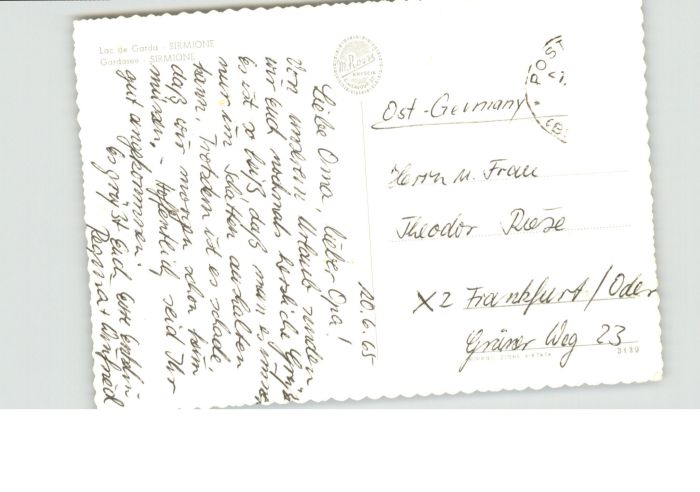 Lac de Garda - SIRMIONE
Gardasee - SIRMIONE
20.6.65
Liebe Oma, lieber Opa!
Von unserem Urlaub senden
wir Euch nochmals herzliche Grüße
Es ist so heiß, daß man es immer
nur im Schatten aushalten
kann. Trotzdem ist es schade,
daß wir morgen schon heim
müssen. - Hoffentlich seid Ihr
gut angekommen.
Es grüßt Euch
Regina + Winfried
M. Rossi
BRESCIA
POST
Ost-Germany
Herrn u. Frau
Theodor Riese
X2 Frankfurt/Oder
Grüner Weg 23
3139